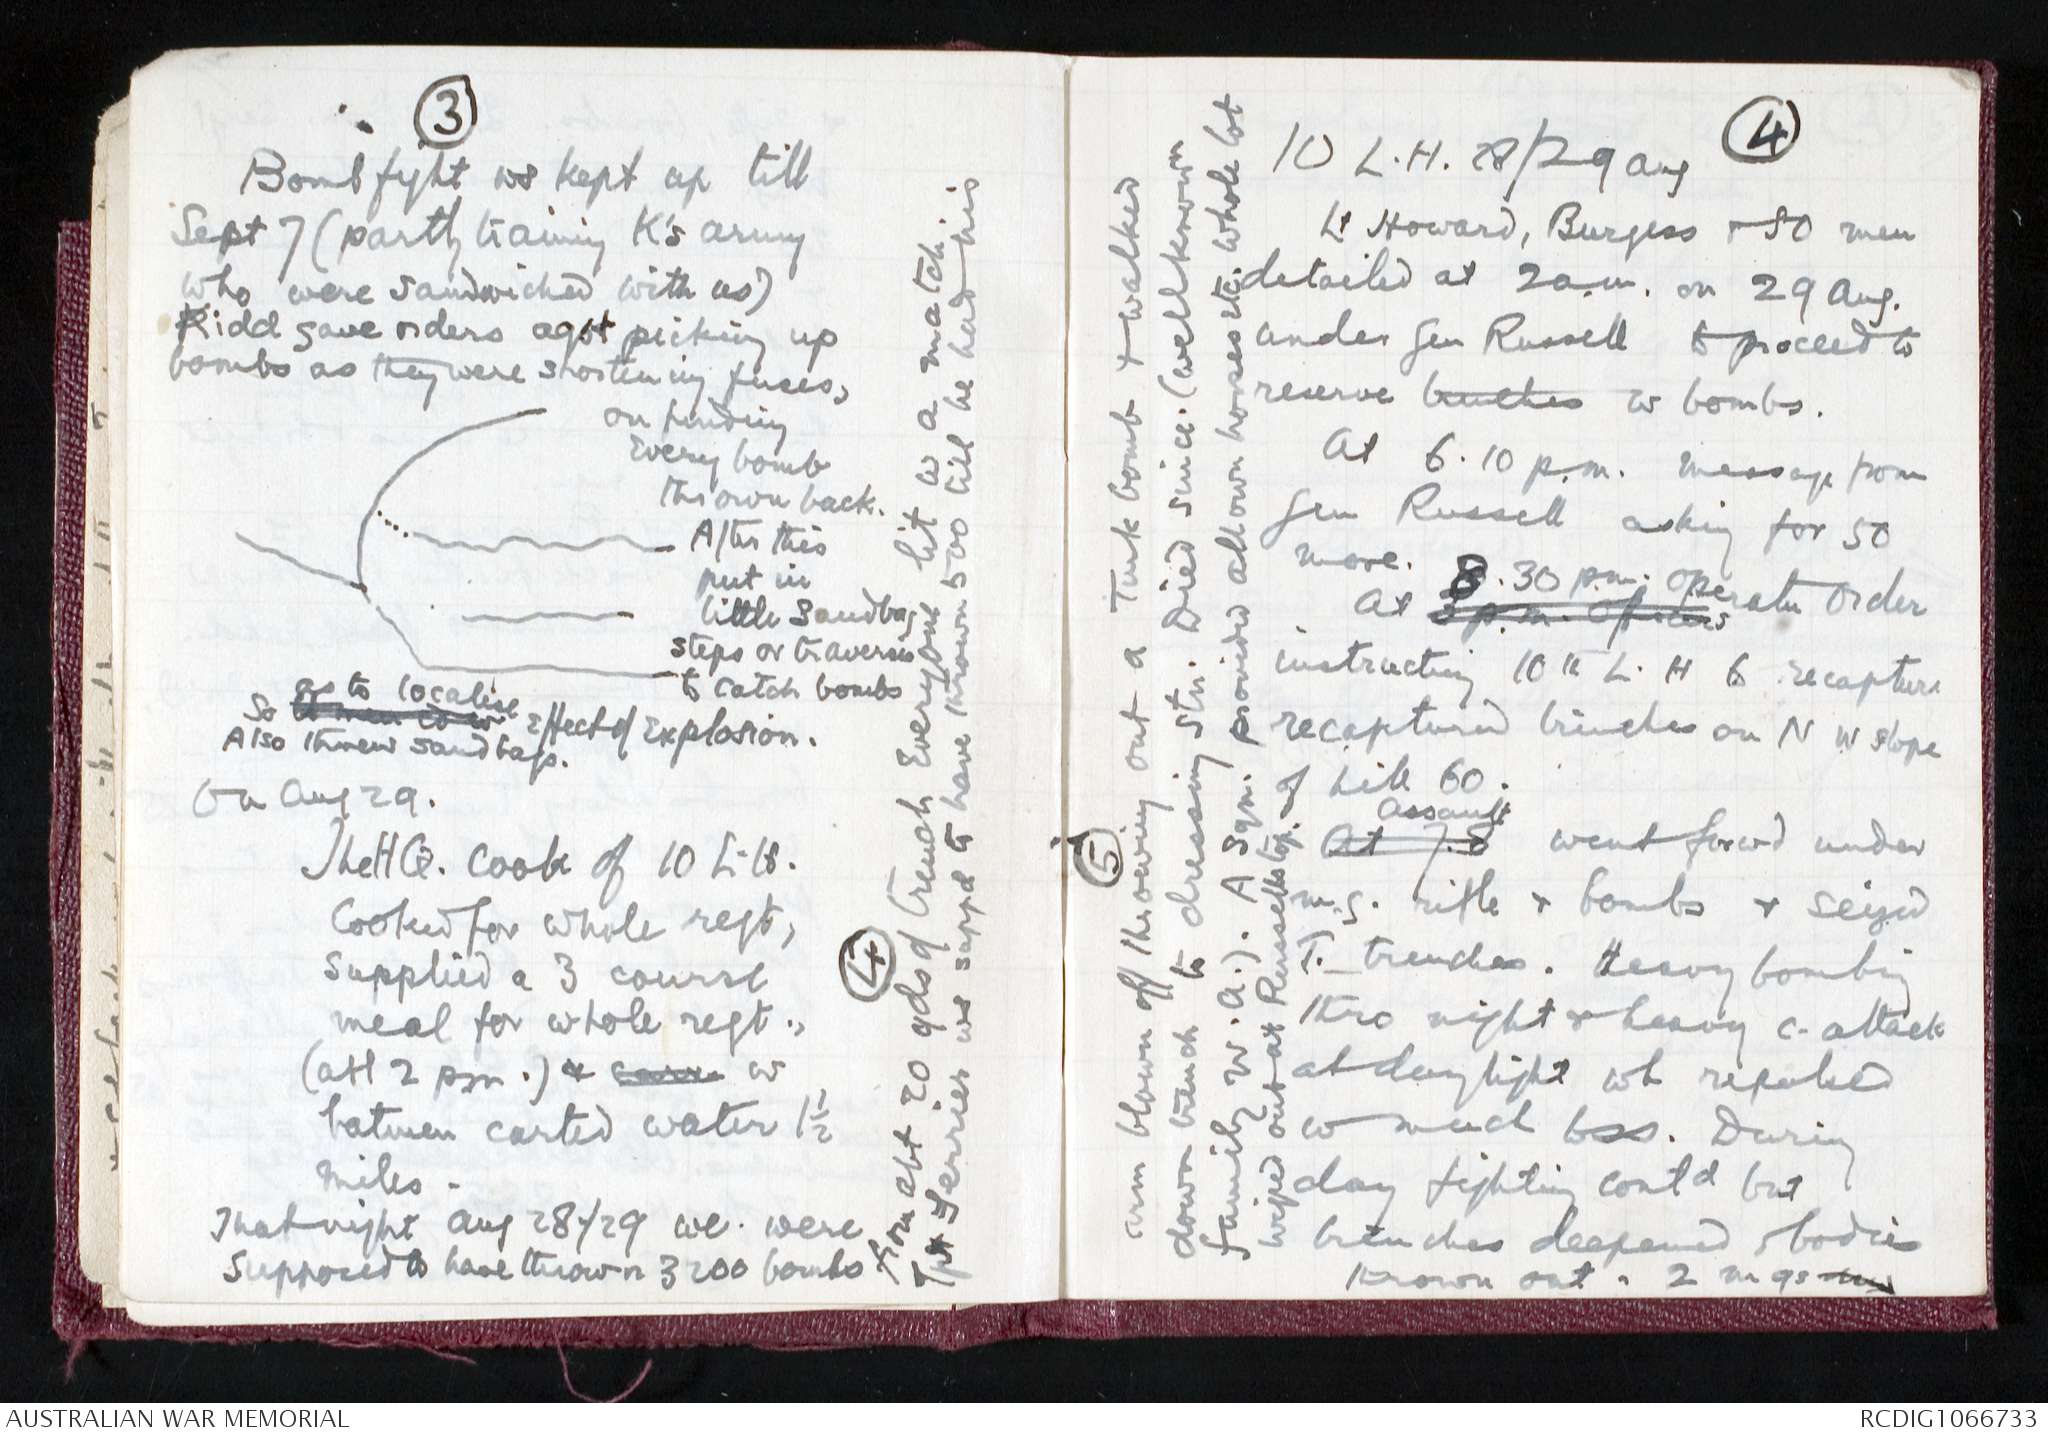 3
Bomb fight ws kept up till
Sept 7 (partly training K's army
who were sandwiched with us)
Kidd gave orders agst picking up
bombs as they were shortening fuses,
on finding
every bomb
thrown back.
After this
put in
little sandbag
steps or traverses
to catch bombs
so as to localise effect of explosion.
Also threw sandbags.
On Aug 29.
The HQ. cook of 10 L.H.
cooked for whole regt,
supplied a 3 course
meal for whole regt.,
(att 2 pm.) & w
batmen carted water 1½
miles.
That night Aug 28/29 we were
supposed to have thrown 3200 bombs
4
from abt 20 yds of trench everyone lit w a match.
Tpr Ferrier ws suppd to have thrown 500 till he had his
5
arm blown off throwing out a Turk bomb & walked
down trench to dressing stn. Died since. (well known
family W.A.). A Sqn. provided all own horses etc. whole lot
wiped out at Russells top.
4
10 L.H. 28/29 Aug
Lt Howard, Burgess & 50 men
detailed at 2 a.m. on 29 Aug.
under Gen Russell to proceed to
reserve trenches w bombs.
At 6.10 p.m. message from
Gen Russell asking for 50
more.
At 3 p.m. Officers 8.30 p.m. operatn order
instructing 10th L.H to recapture
recaptured trenches on N W slope
of hill 60.
At 7.8 Assault went forwd under
m.g. rifle & bombs & seized
T. trenches. Heavy bombing
thro night & heavy c-attack
at daylight wh repulsed
w much loss. During
day fighting contd but
trenches deepened & bodies
thrown out. 2 m gs
AUSTRALIAN WAR MEMORIAL
RCDIG1066733